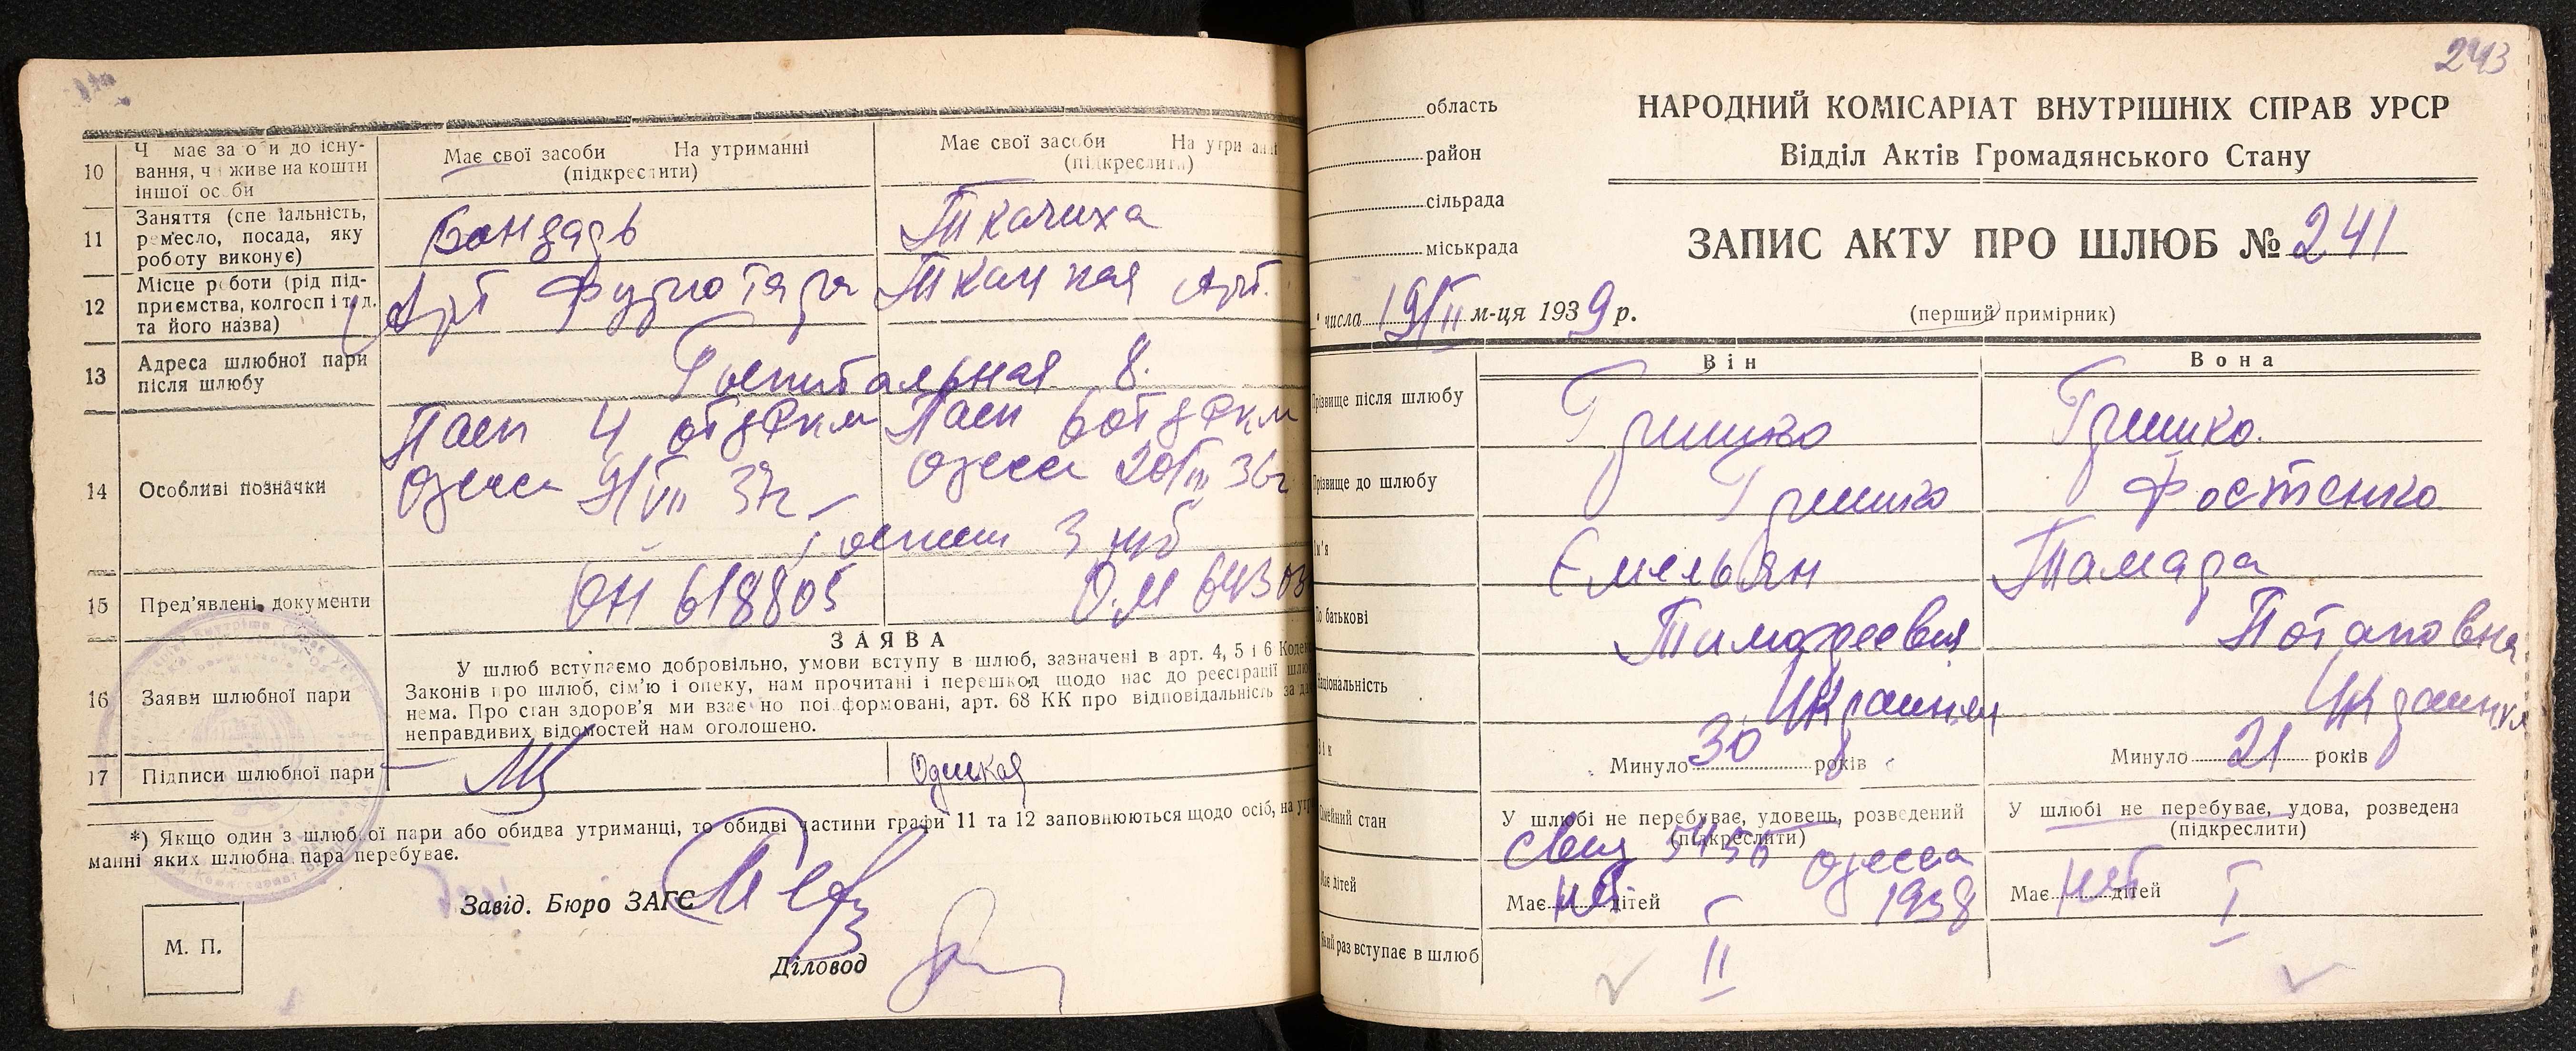 10 Чи має засоби до існу- Має свої засоби На утриманні Має свої засоби На утриманні
вання, чи живе на кошти (підкреслити) (підкреслити)
іншої особи
11 Заняття (спеціальність,
ремесло, посада, яку
роботу виконує)
Бондарь Ткачиха
12 Місце роботи (рід під-
приємства, колгосп і т. д.
та його назва)
Арт Фузютара Ткацкая Арт.
13 Адреса шлюбної пари
після шлюбу
Госпитальная 8.
14 Особливі позначки
Пасп 4 отд Ркм Пасп 6 отд Ркм
Одесса 9/VII 37г Одесса 20/III 36г
15 Пред'явлені документи
ОН 618805 О.М 64303
16 Заяви шлюбної пари
ЗАЯВА
У шлюб вступаємо добровільно, умови вступу в шлюб, зазначені в арт. 4, 5 і 6 Кодекс
Законів про шлюб, сім'ю і опеку, нам прочитані і перешкод щодо нас до реєстрації шлю
нема. Про стан здоров'я ми взаємно поінформовані, арт. 68 КК про відповідальність за да
неправдивих відомостей нам оголошено.
17 Підписи шлюбної пари
*) Якщо один з шлюбної пари або обидва утриманці, то обидві частини графи 11 та 12 заповнюються щодо осіб, на утри
манні яких шлюбна пара перебуває.
Завід. Бюро ЗАГС
М. П.
Діловод
243
область
район
сільрада
міськрада
НАРОДНИЙ КОМІСАРІАТ ВНУТРІШНІХ СПРАВ УРСР
Відділ Актів Громадянського Стану
ЗАПИС АКТУ ПРО ШЛЮБ № 241
числа 19/II м-ця 1939 р.
(перший примірник)
Він Вона
Прізвище після шлюбу Гришко Гришко.
Прізвище до шлюбу Гришко Фостенко
Ім'я Емельян Тамара
По батькові Тимофеевич Потаповна
Національність Украинец Украинка
Вік Минуло 30 років Минуло 21 років
Сімейний стан У шлюбі не перебуває, удовець, розведений У шлюбі не перебуває, удова, розведена
(підкреслити) (підкреслити)
Одесса
1938
Має дітей Має нет дітей Має нет дітей
Який раз вступає в шлюб II I